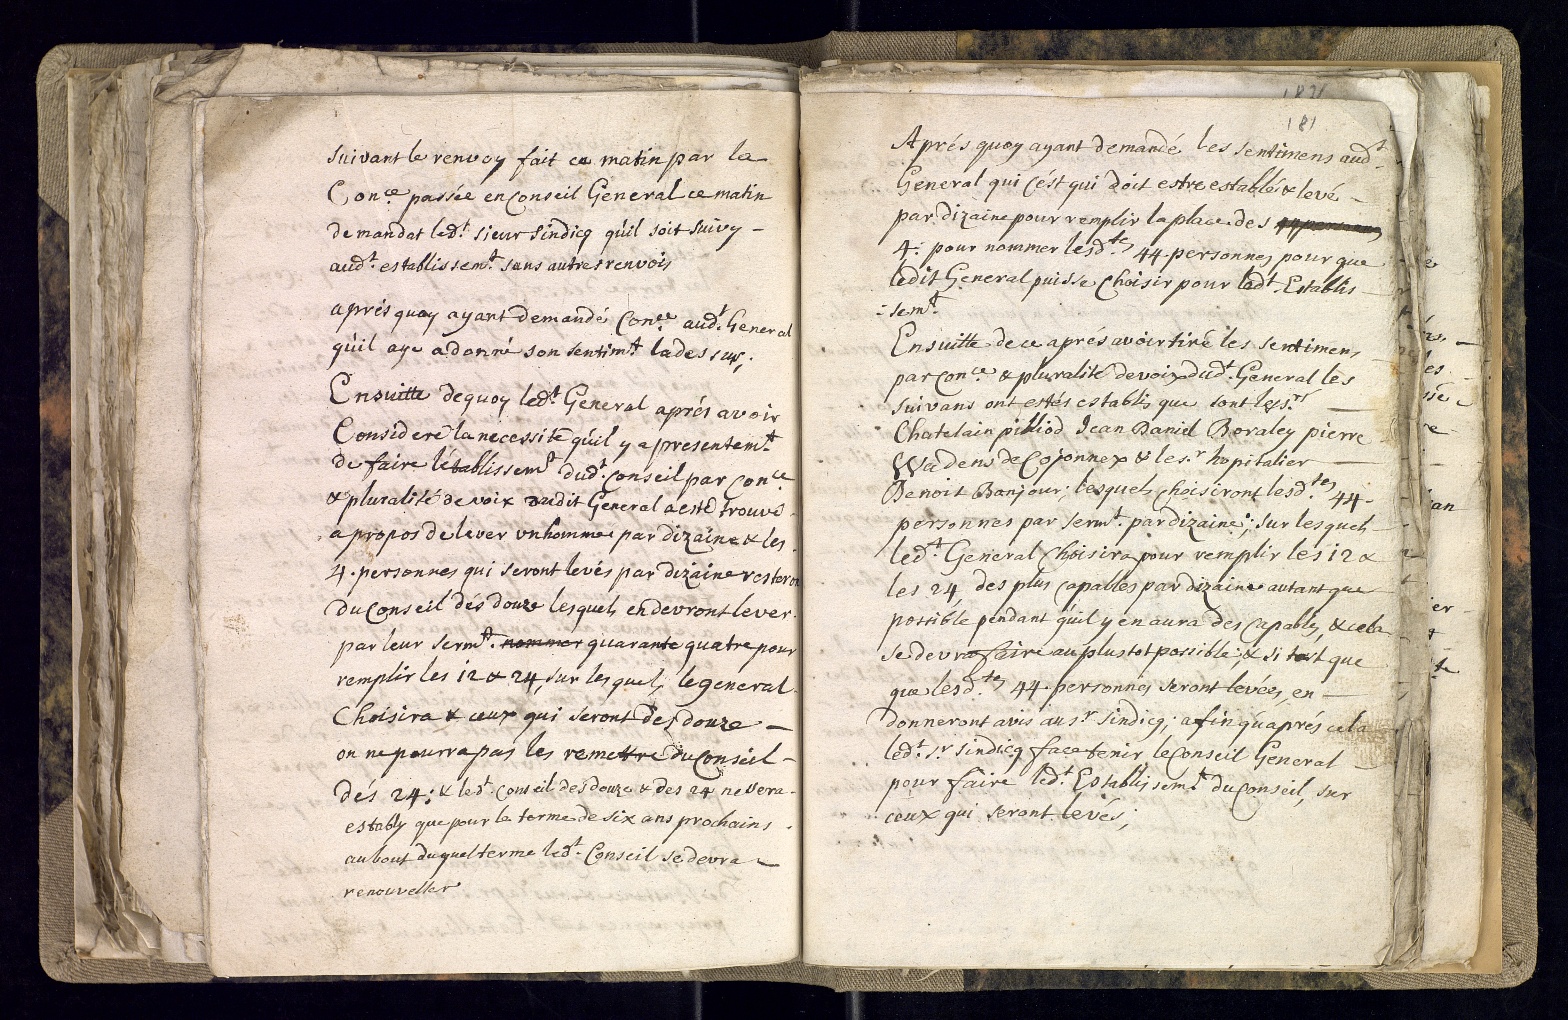 suivant le renvoy fait ce matin par la
Con.ce passée en Conseil General ce matin
demandat led.t sieur sindicq qúil soit suivy –
aud.t establissem.t sans autres renvois
aprés quoy ayant demandé Con.ce aud.t General
qúil aye a donné son sentim.t la dessus;
Ensuitte de quoy led.t General aprés avoir
Consideré la necessité qúil y a presentem.t
de faire létablissem.t dud.t Conseil par Con.ce
& pluralité de voix dudit General a esté trouvé
a propos de lever vn homme par dizaine & les
4. personnes qui seront levés par dizaine resteron
du Conseil dés douze lesquels en devront lever
par leur serm.t nommer quarante quatre pour
remplir les 12 & 24, sur lesquels le general
Choisira & ceux qui seront des douze –
on ne pourra pas les remettre du Conseil –
dés 24; & led.t Conseil des douze & des 24 ne sera
estably que pour le terme de six ans prochains
au bout duquel terme led.t Conseil se devra –
renouveller
181
Aprés quoy ayant demandé les sentimens aud.t
General qui cést qui doit estre establi & levé –
par dizaine pour remplir la place des
4: pour nommer lesd.tes 44 personnes pour que
ledit General puisse Choisir pour led.t Establis
-sem.t
Ensuitte de ce aprés avoir tiré les sentimens
par Con.ce & pluralité de voix dud.t General les
suivans ont estés establis que sont les s.rs —
Chatelain pilliod Jean Daniel Boraley pierre
Wadens de Cojonnex & le s.r hopitalier —
Benoit Banjour; lesquels choisiront lesd.tes 44
personnes par serm.t par dizaine; sur lesquels
led.t General Choisira pour remplir les 12 &
les 24, des plus capables par dizaine autant que
possible pendant qúil y en aura des capables, & cela
se devra faire au plustot possible; & si tost que
que lesd.tes 44 personnes seront levées, en —
donneront avis au s.r sindicq; afin qúaprés cela
led.t s.r sindicq face tenir le Conseil General
pour faire led.t Establissem.t du Conseil, sur
ceux qui seront levés;